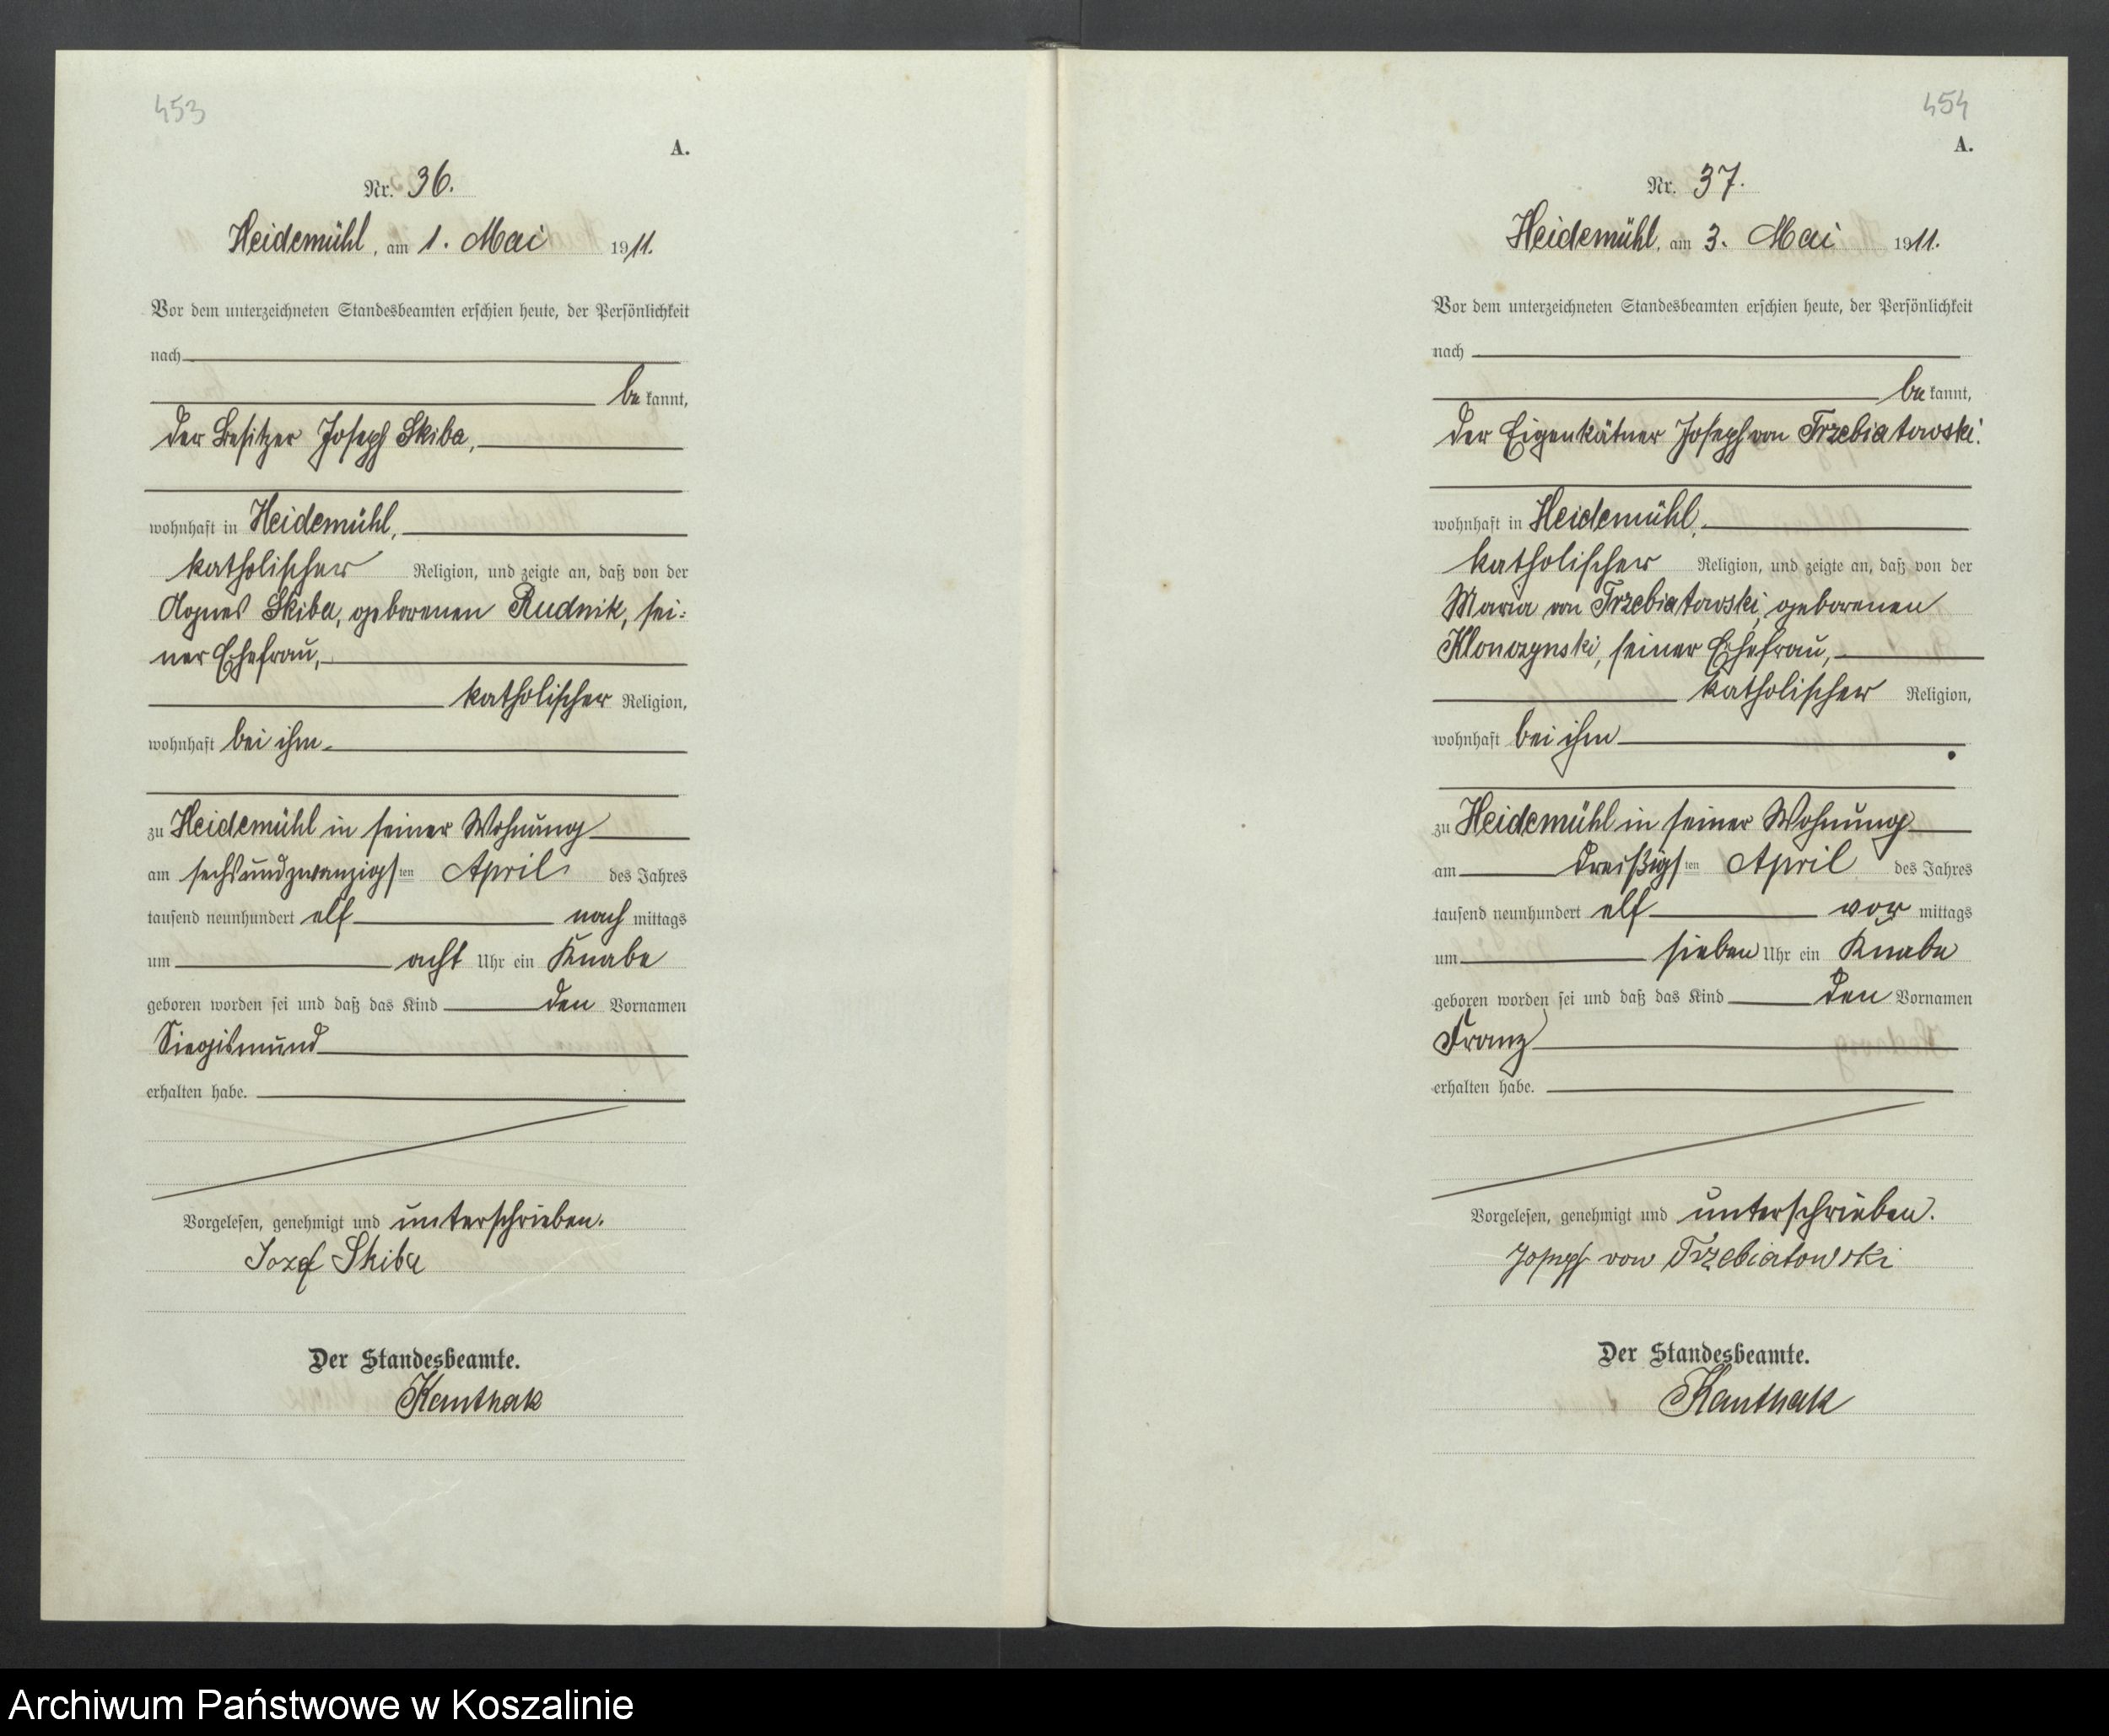 453
A.
Nr. 36.
Heidemühl, am 1. Mai 1911.
Vor dem unterzeichneten Standesbeamten erschien heute, der Persönlichkeit
nach
be kannt,
der Besitzer Joseph Skiba,
wohnhaft in Heidemühl,
katholischer Religion, und zeigte an, daß von der
Agnes Skiba, geborenen Rudnik, sei:
ner Ehefrau,
katholischer Religion,
wohnhaft bei ihm
zu Heidemühl in seiner Wohnung
am sechsundzwanzigsten April des Jahres
tausend neunhundert elf nach mittags
um acht Uhr ein Knabe
geboren worden sei und daß das Kind den Vornamen
Siegismund
erhalten habe.
Vorgelesen, genehmigt und unterschrieben.
Jozef Skiba
Der Standesbeamte.
Kanthak
454
A.
Nr. 37.
Heidemühl, am 3. Mai 1911.
Vor dem unterzeichneten Standesbeamten erschien heute, der Persönlichkeit
nach
be kannt,
der Eigenkätner Joseph von Trzebiatowski.
wohnhaft in Heidemühl,
katholischer Religion, und zeigte an, daß von der
Maria von Trzebiatowski, geborenen
Klonczynski, seiner Ehefrau,
katholischer Religion,
wohnhaft bei ihm
zu Heidemühl in seiner Wohnung
am dreißigsten April des Jahres
tausend neunhundert elf vor mittags
um sieben Uhr ein Knabe
geboren worden sei und daß das Kind den Vornamen
Franz
erhalten habe.
Vorgelesen, genehmigt und unterschrieben.
Joseph von Trzebiatowski
Der Standesbeamte.
Kanthak
Archiwum Państwowe w Koszalinie